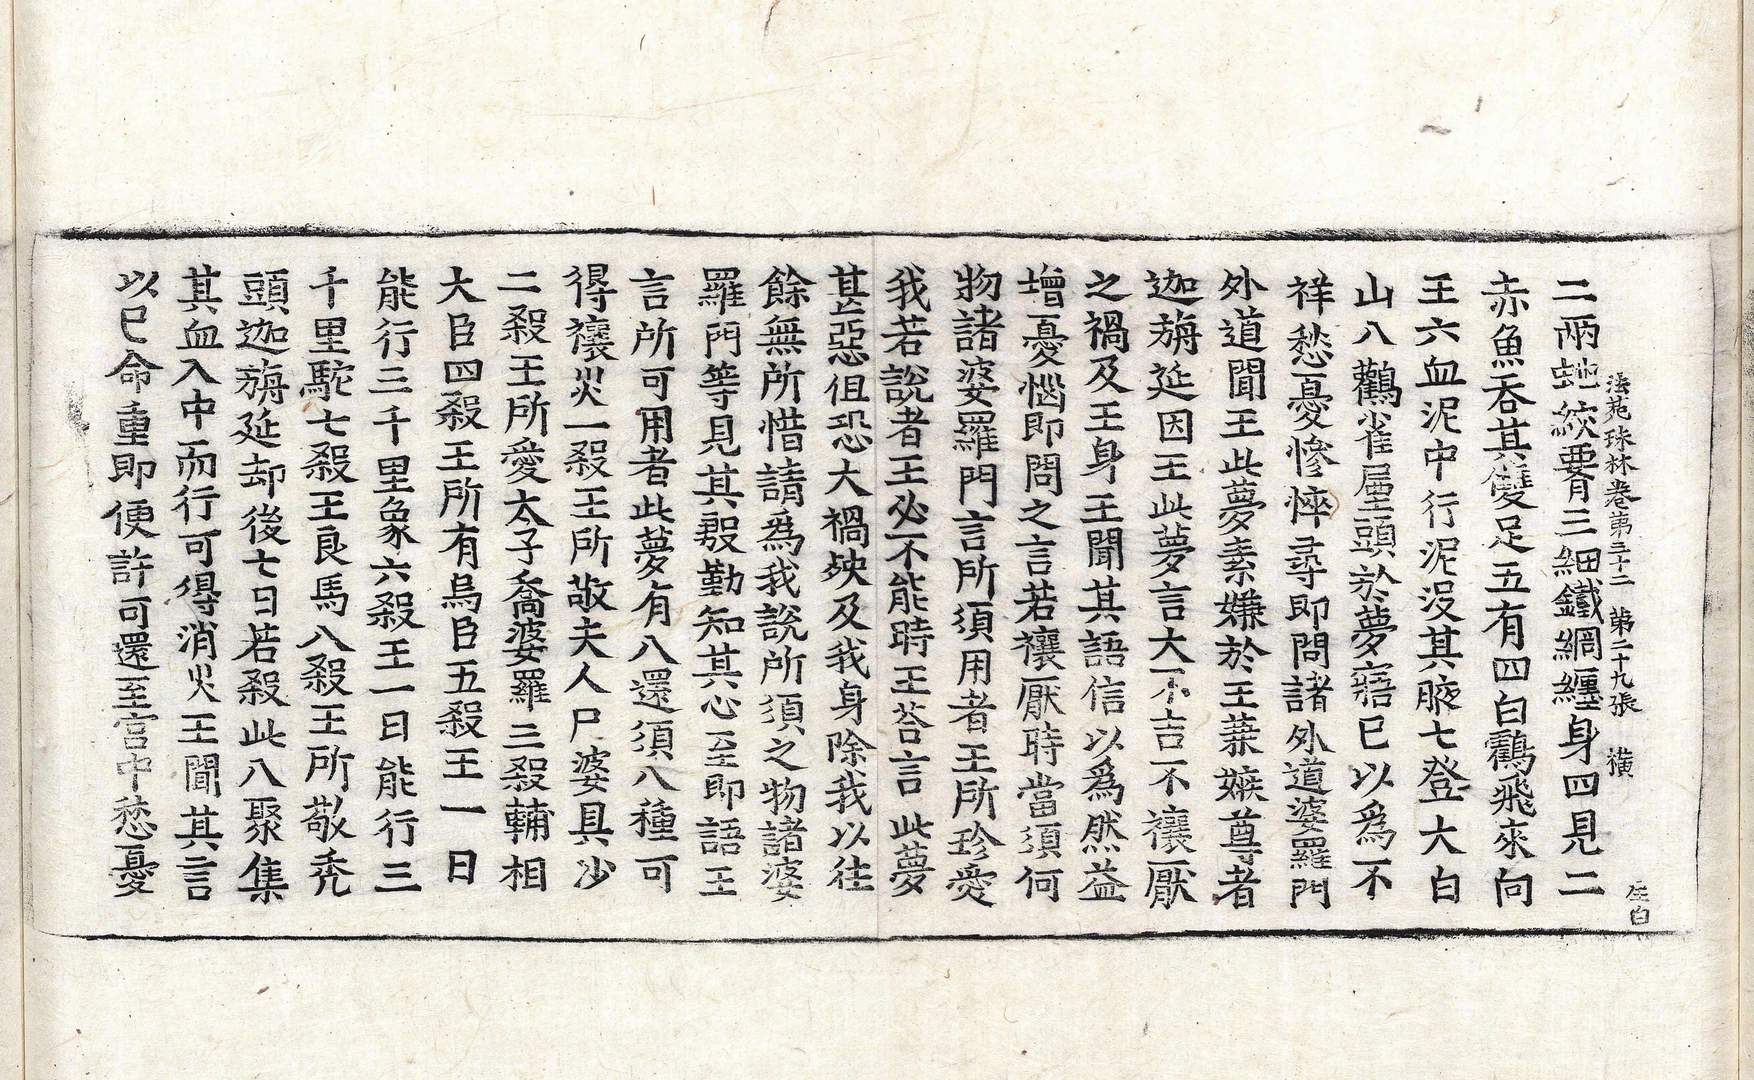 法苑珠林卷第三十二　第二十九張　橫
二兩虵絞要三細鐵網纏身四見二
赤魚吞其雙足五有四白鶴飛來向
王六血泥中行泥沒其腋七登大白
山八鸛雀屋頭於夢寤已以爲不
祥愁憂慘悴尋即問諸外道婆羅門
外道聞王此夢素嫌於王兼嫉尊者
迦旃延因王此夢言大不吉不禳厭
之禍及王身王聞其語信以爲然益
增憂惱即問之言若禳厭時當須何
物諸婆羅門言所須用者王所珍愛
我若說者王必不能時王荅言此夢
甚惡但恐大禍殃及我身除我以往
餘無所惜請爲我說所須之物諸婆
羅門等見其慇勤知其心至即語王
言所可用者此夢有八還須八種可
得禳災一殺王所敬夫人尸婆具沙
二殺王所愛太子喬婆羅三殺輔相
大臣四殺王所有烏臣五殺王一日
能行三千里象六殺王一日能行三
千里駝七殺王良馬八殺王所敬禿
頭迦旃延却後七日若殺此八聚集
其血入中而行可得消災王聞其言
以己命重即便許可還至宮中愁憂